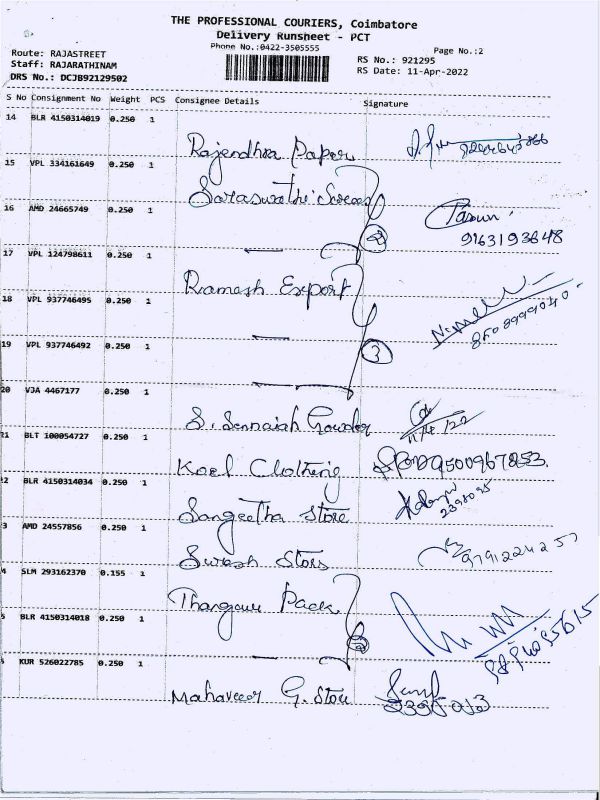 THE PROFESSIONAL COURIERS, Coimbatore
Delivery Runsheet - PCT
Phone No.:0422-3505555
Page No.:2
Route: RAJASTREET
Staff: RAJARATHINAM
DRS No.: DCJB92129502
RS No.: 921295
RS Date: 11-Apr-2022
S No Consignment No Weight PCS Consignee Details Signature
14 BLR 4150314019 0.250 1
Rajendhra Paper
15 VPL 334161649 0.250 1
Saraswathi
16 AMD 24665749 0.250 1
2
9163193648
17 VPL 124798611 0.250 1
Ramesh Export
18 VPL 937746495 0.250 1
8508999040
19 VPL 937746492 0.250 1
3
20 VJA 4467177 0.250 1
S. Sennaiah Gounder
11/4/22
21 BLT 100054727 0.250 1
Koel Clothing
9500967853
2 BLR 4150314034 0.250 1
Sangeetha Store
2398095
3 AMD 24557856 0.250 1
Suresh Store
9791224257
4 SLM 293162370 0.155 1
Pack
5 BLR 4150314018 0.250 1
2
KUR 526022785 0.250 1
Mahaveer G. Store